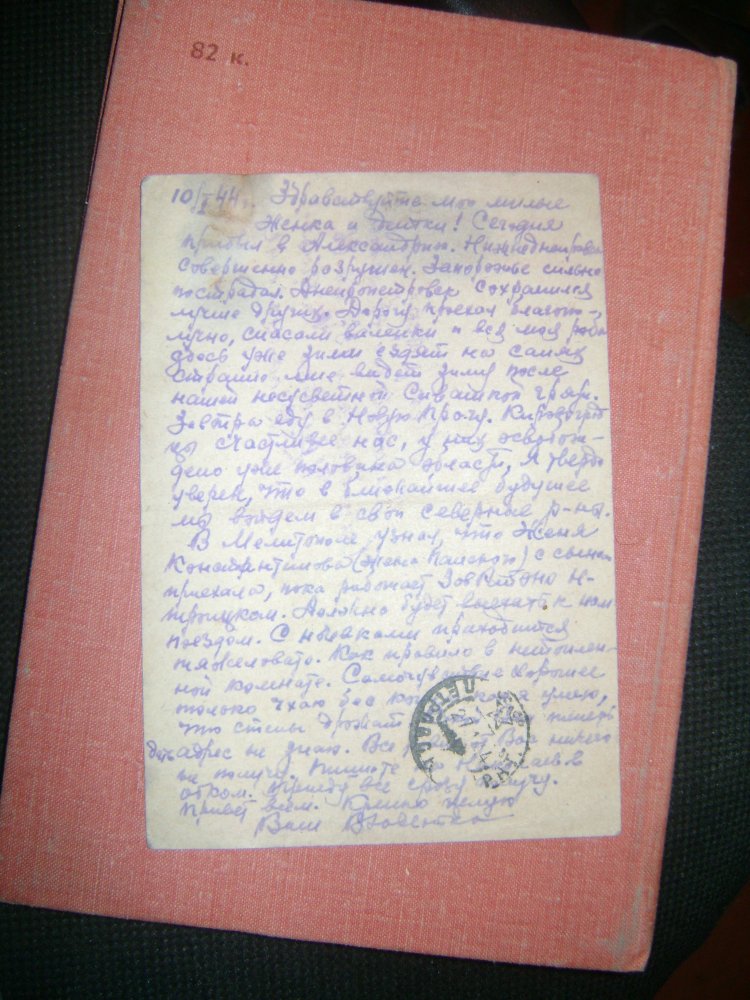 82 к.
10/I 44 г. Здравствуйте мои милые
Женка и детки! Сегодня
прибыл в Александрию.
совершенно разрушен. Запорожье сильно
пострадал. Днепропетровск сохранился
лучше других. Дорогу проехал благопо-
лучно, спасали валенки и вся моя
здесь уже зима ездят на санях
странно мне видеть зиму после
нашей несусветной Сивашской грязи.
Завтра еду в Новую Прагу. Кировоград
цы счастливее нас, у них освобож-
дено уже половина области, я твердо
уверен, что в ближайшее будущее
мы войдем в свои северные р-ны.
В Мелитополе узнал, что Женя
Константинова (жена ) с сыном
приехала, пока работает
Должно будет выехать к нам
поездом. С ночевками приходится
тяжеловато. Как правило в нетоплен-
ной комнате. Самочувствие хорошее
только чхаю без умею,
что стены дрожат теперь
дать адрес не знаю. Все Вас ничего
не получу. Пишите на Николаев в
обком. Приеду все сразу получу.
Привет всем. Крепко целую
Ваш